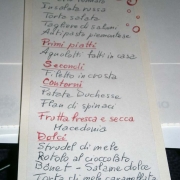 Insalata russa
Torta salata
Tagliere di salumi
Antipasto piemontese
Primi piatti
Agnolotti fatti in casa
Secondi
Filetto in crosta
Contorni
Patate Duchesse
Flan di spinaci
Frutta fresca e secca
Macedonia
Dolci
Strudel di mele
Rotolo al cioccolato
Bonet - Salame dolce
Torta di mele caramellata